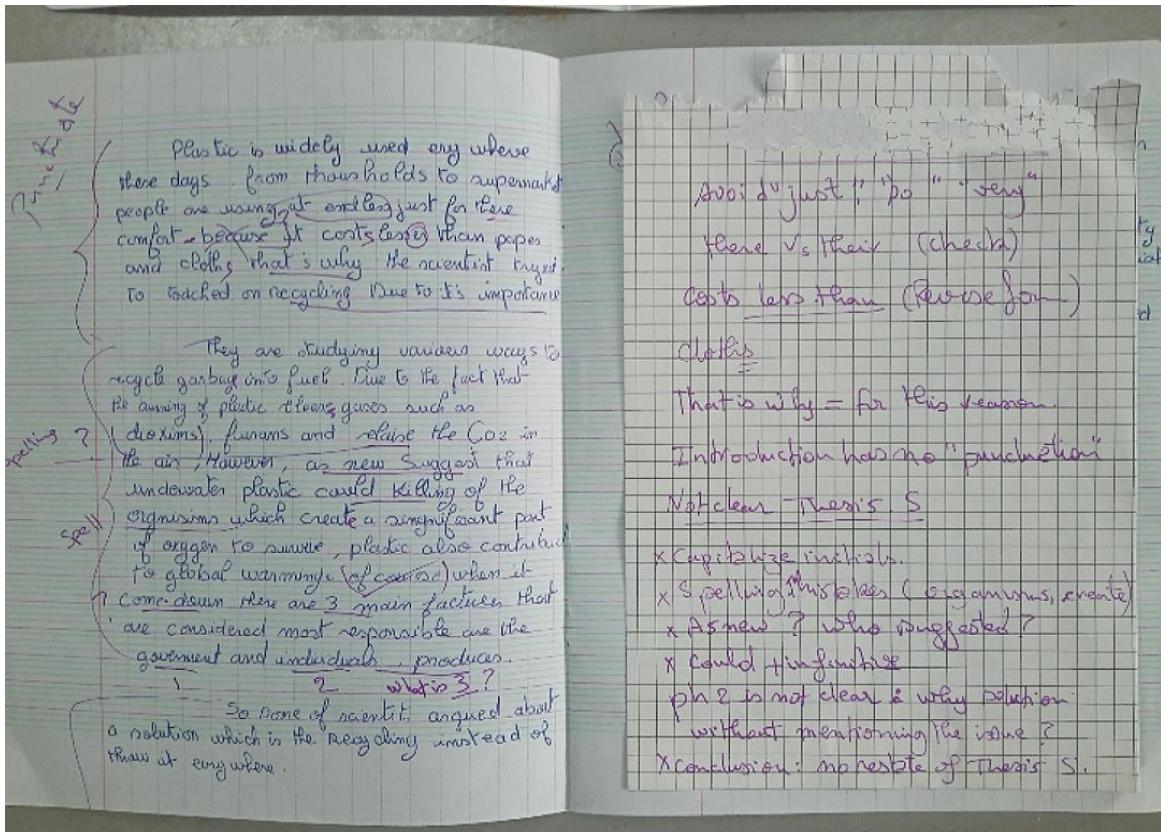 Plastic is widely used evry where
these days. from thousholds to supermarket
people are using at endless just for there
comfort. because It costs less than papes
and cloths that's why the scientist tryed
to toached on recycling Due to it's importance
They are studying various ways to
recycle garbage into fuel. Due to the fact that
the burning of plastic gases such as
(dioxims), furans and relaise the Co2 in
the air, However, as new suggest that
underwater plastic could killing of the
orgnisims which create a singnificant part
of oxygen to survive, plastic also contribut
to global warminge (of cource) when it
come down there are 3 main factures that
are considered most responsible are the
goverment and individuals, produces.
1 2 what is 3?
So some of scientit argued about
a solution which is the Recycling instead of
thraw at evry where.
spelling ?
Spell
?
Avoid "just", "so" "very"
there Vs their (check)
Costs less than (Revise for)
cloths
That is why = for this reason.
Introduction has no "punctuation"
Not clear Thesis S
x Capitalize initials.
x Spelling mistakes (organisms, create)
x As new ? who suggested ?
x Could + infinitive
ph 2 is not clear & why solution
without mentioning the issue ?
x Conclusion: no restate of Thesis S.